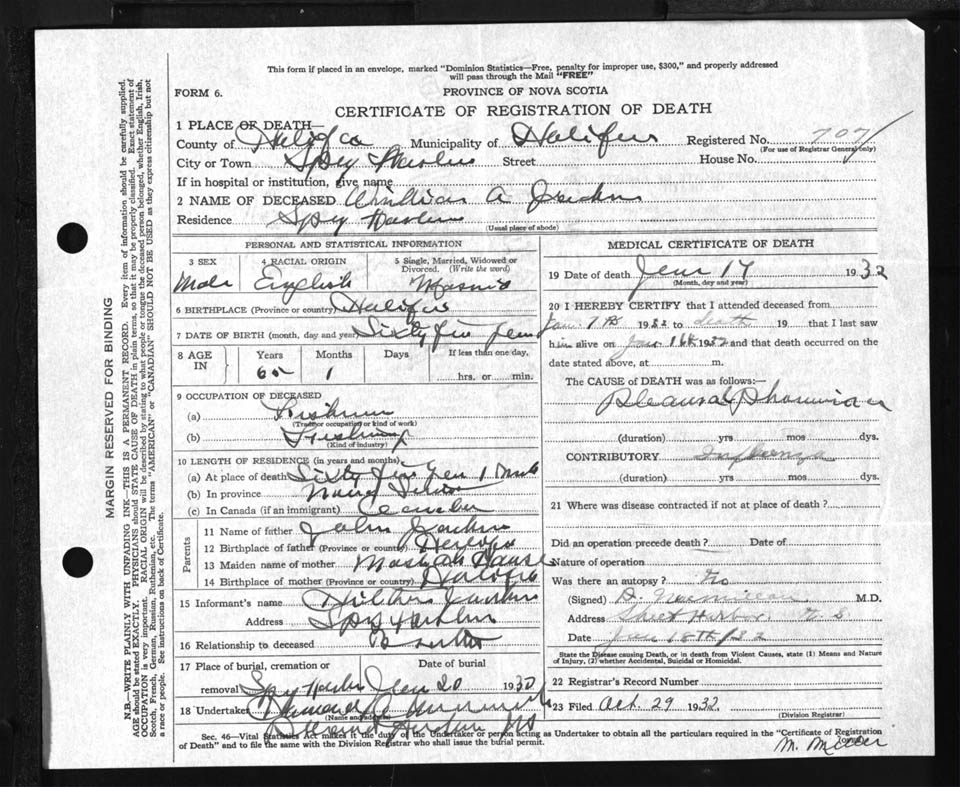 This form if placed in an envelope, marked "Dominion Statistics—Free, penalty for improper use, $300," and properly addressed
will pass through the Mail "FREE"
FORM 6.
PROVINCE OF NOVA SCOTIA
CERTIFICATE OF REGISTRATION OF DEATH
1 PLACE OF DEATH—
County of Halifax Municipality of Halifax Registered No. 707
(For use of Registrar General only)
City or Town Spry Harbour Street House No.
If in hospital or institution, give name
2 NAME OF DECEASED William A
Residence Spry Harbour
(Usual place of abode)
PERSONAL AND STATISTICAL INFORMATION
3 SEX 4 RACIAL ORIGIN 5 Single, Married, Widowed or Divorced. (Write the word)
Male English
6 BIRTHPLACE (Province or country) Halifax
7 DATE OF BIRTH (month, day and year) Sixty
8 AGE IN Years Months Days If less than one day,
1 hrs. or min.
9 OCCUPATION OF DECEASED
(a) Fisherman
(Trade or occupation or kind of work)
(b) Fishing
(Kind of industry)
10 LENGTH OF RESIDENCE (in years and months)
(a) At place of death Sixty 1
(b) In province Nova
(c) In Canada (if an immigrant)
Parents
11 Name of father John
12 Birthplace of father (Province or country)
13 Maiden name of mother
14 Birthplace of mother (Province or country)
15 Informant's name
Address Spry Harbour
16 Relationship to deceased
17 Place of burial, cremation or Date of burial
removal Spry Harbour Jan 20 1932
18 Undertaker
(Name and address)
NS
MEDICAL CERTIFICATE OF DEATH
19 Date of death Jan 17 1932
(Month, day and year)
20 I HEREBY CERTIFY that I attended deceased from
Jan. 1932 to death 19 that I last saw
him alive on Jan. 16th 1932 and that death occurred on
date stated above, at m.
The CAUSE OF DEATH was as follows:—
(duration) yrs mos dys.
CONTRIBUTORY Influenza
(duration) yrs. mos dys.
21 Where was disease contracted if not at place of death?
Did an operation precede death? Date of
Nature of operation
Was there an autopsy? No
(Signed) D. M.D.
Address Sheet Harbor N S
Date Jan 18th/32
State the Disease causing Death, or in death from Violent Causes, state (1) Means and Nature
of Injury, (2) whether Accidental, Suicidal or Homicidal.
22 Registrar's Record Number
23 Filed Oct. 29 1932
(Division Registrar)
M. Miller
Sec. 46—Vital Statistics Act makes it the duty of the Undertaker or person acting as Undertaker to obtain all the particulars required in the "Certificate of Registration
of Death" and to file the same with the Division Registrar who shall issue the burial permit.
MARGIN RESERVED FOR BINDING
N.B.—WRITE PLAINLY WITH UNFADING INK—THIS IS A PERMANENT RECORD. Every item of information should be carefully supplied.
AGE should be stated EXACTLY. PHYSICIANS should STATE CAUSE OF DEATH in plain terms, so that it may be properly classified. Exact statement of
OCCUPATION is very important. RACIAL ORIGIN will be described by stating to what people or tongue the deceased person belonged, whether English, Irish,
Scotch, French, German, Russian, Ruthenian, etc. The terms "AMERICAN" or "CANADIAN" SHOULD NOT BE USED as they express citizenship but not
a race or people. See instructions on back of Certificate.